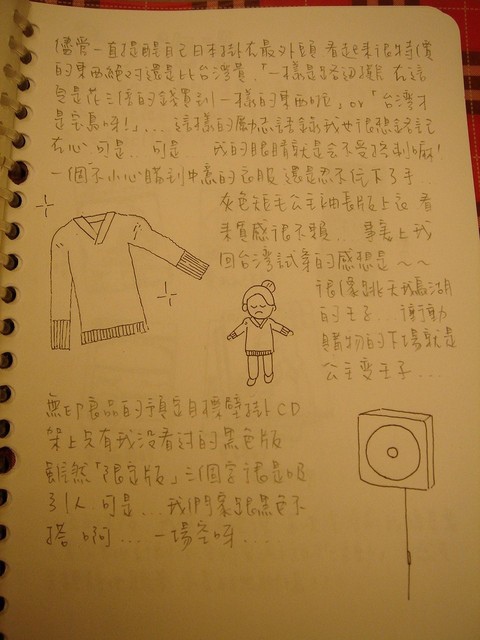 儘管一直提醒自己日本掛在最外頭看起來很特價
的東西絕對還是比台灣貴.「一樣是
是花三倍的錢買到一樣的東西呢」or「台灣才
是寶島呀!」... 這樣的勵志語錄我也很想銘記
在心 可是.. 可是... 我的眼睛就是會不受控制嘛!
一個不小心瞄到中意的衣服 還是忍不住下了手..
灰色短毛公主袖長版上衣 看
來質感很不賴.. 事實上我
回台灣試穿的感想是~~
很像跳天鵝湖
的王子... 衝動
購物的下場就是
公主變王子...
無印良品的預定目標壁掛CD
架上只有我沒看過的黑色版
雖然「限定版」三個字很是吸
引人 可是... 我們家跟黑色不
搭啊.... 一場空呀....